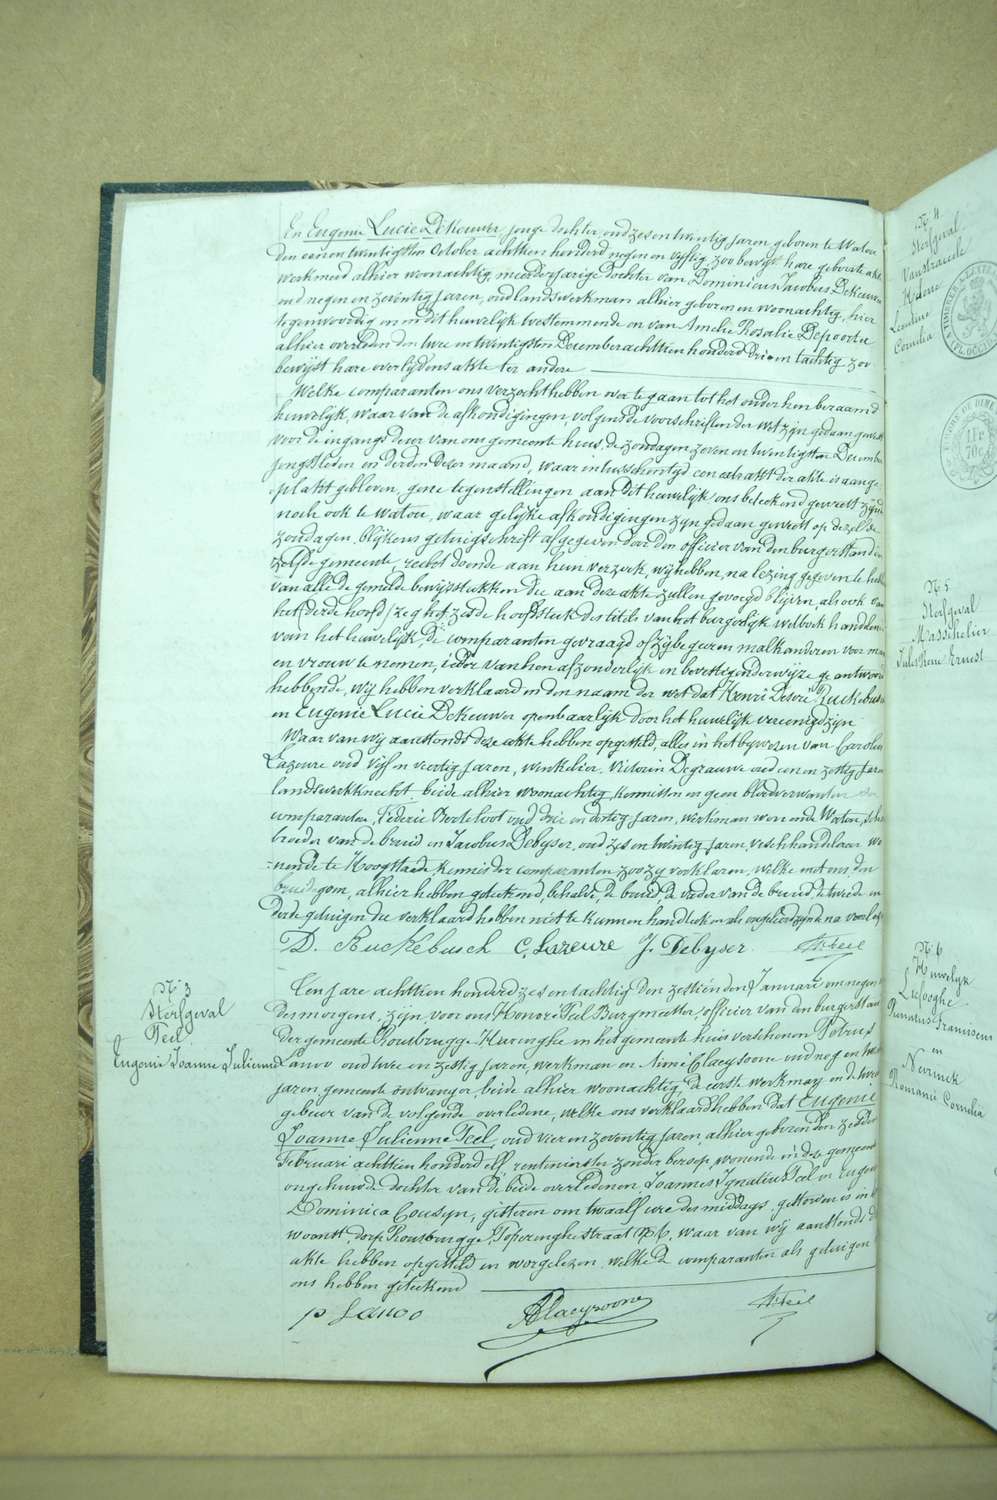 En Eugenie Lucie Dekeuwer, jonge dochter, oud zes en twintig jaren geboren te Watou
den een en twintigsten October achttien honderd negen en vyftig, zoo bewijst hare geborteakte
werkmeid alhier woonachtig, meerderjarige dochter van Dominicus Jacobus Dekeuwer
oud negen en zeventig jaren, oud landswerkman alhier geboren en woonachtig, hier
tegenwoordig en in dit huwelijk toestemmende en van Amelie Rosalie Depoorter
alhier overleden den twee en twintigsten December achttien honderd drie en tachtig zoo
bewijst hare overlijdensakte ter andere
Welke comparanten ons verzocht hebben voor te gaan tot het onder hen beraamd
huwelijk, waar van de afkondigingen, volgens de voorschriften der wet zijn gedaan geweest
voor de ingangs deur van ons gemeente huis, de zondagen zeven en twintigsten December
jongstleden en derden dezer maand, waar intusschentijd een uals akt der akte is aange
plakt gebleven, gene tegenstellingen aan dit huwelijk ons beteekend geweest zijnde
noch ook te Watou, waar gelijke afkondigingen zijn gedaan geweest op dezelfde
zondagen, blijkens getuigschrift afgegeven door den officier van den burgerstand der
zelfde gemeente, recht doende aan hun verzoek, wij hebben, na lezing gegeven te hebben
van alle de gemelde bewijsstukken die aan deze akte zullen gevoegd blijven, als ook van
het (derde hoofd) zeg het zesde hoofdstuk des titels van het burgerlijk wetboek handelende
van het huwelijk, de comparanten gevraagd of zij begeeren malkanderen voor man
en vrouw te nemen, ieder van hen afzonderlijk en bevestigender wijze geantwoord
hebbende, wij hebben verklaard in den naam der wet dat Henri Désiré Ruckebusch
en Eugenie Lucie Dekeuwer openbaarlijk door het huwelijk vereenigd zijn
Waar van wij aanstonds deze akte hebben opgesteld, alles in het bijwezen van Carolus
Lazeure oud vijf en veertig jaren, winkelier, Victorin Degrauwe oud een en zestig jaren
landswerkknecht, beide alhier woonachtig, kennissen en geen bloedverwanten der
comparanten, Federic Berteloot oud drie en dertig jaren, werkman wonende Watou, schoon
broeder van de bruid en Jacobus Debyser, oud zes en twintig jaren, veschhandelaar wo
nende te Hoogstaade, kennis der comparanten zoo zy verklaren, welke met ons, den
bruidegom, alhier hebben geteekend, behalve, de bruid, de vader van de bruid, de tweede en
derde getuigen die verklaard hebben niet te kunnen handteekenen als ongeleerd zijnde na voorlezing
D. Ruckebusch C, Lazeure J. Debyser. H. Teel
N: 3
Sterfgeval
Teel
Eugenie Joanne Julienne
Ten jare achttien honderd zes en tachtig den zestienden Januari om negen
des morgens, zijn voor ons Honoré Teel Burgmeester, officier van den burgerstand
der gemeente Rousbrugge Haringhe in het gemeente huis verschenen Petrus
Lanoo oud twee en zestig jaren, werkman en Aimé Claeysoone oud neg en twintig
jaren gemeente ontvanger, beide alhier woonachtig, de eerste werkman en de tweede
gebuur van de volgende overledene, welke ons verklaard hebben dat Eugenie
Joanne Julienne Teel, oud vier en zeventig jaren, alhier geboren den zesden
Februari achttien honderd elf, rentenierster zonder beroep, wonende in deze gemeente
ongehuwde dochter van de beide overledenen, Joannes Ignatius Teel en Eugenie
Dominica Cousyn, gisteren om twaalf ure des middags, gestorven is in hare
woonst, dorp Rousbrugge, Poperinghe straat N: 6, waar van wij aanstonds deze
akte hebben opgesteld en voorgelezen, welke de comparanten als getuigen met
ons hebben geteekend
p Lanoo AClaeysoone H. Teel
N: 4
Sterfgeval
Vanstraceele
Victorie
Leonture
Cornelia
N: 5
Sterfgeval
Masschelier
Jules René Ernest
N: 6
Huwelijk
Liefooghe
Renatus Franciscus
en
Neirinck
Romanie Cornelia
1 Fr
70 c